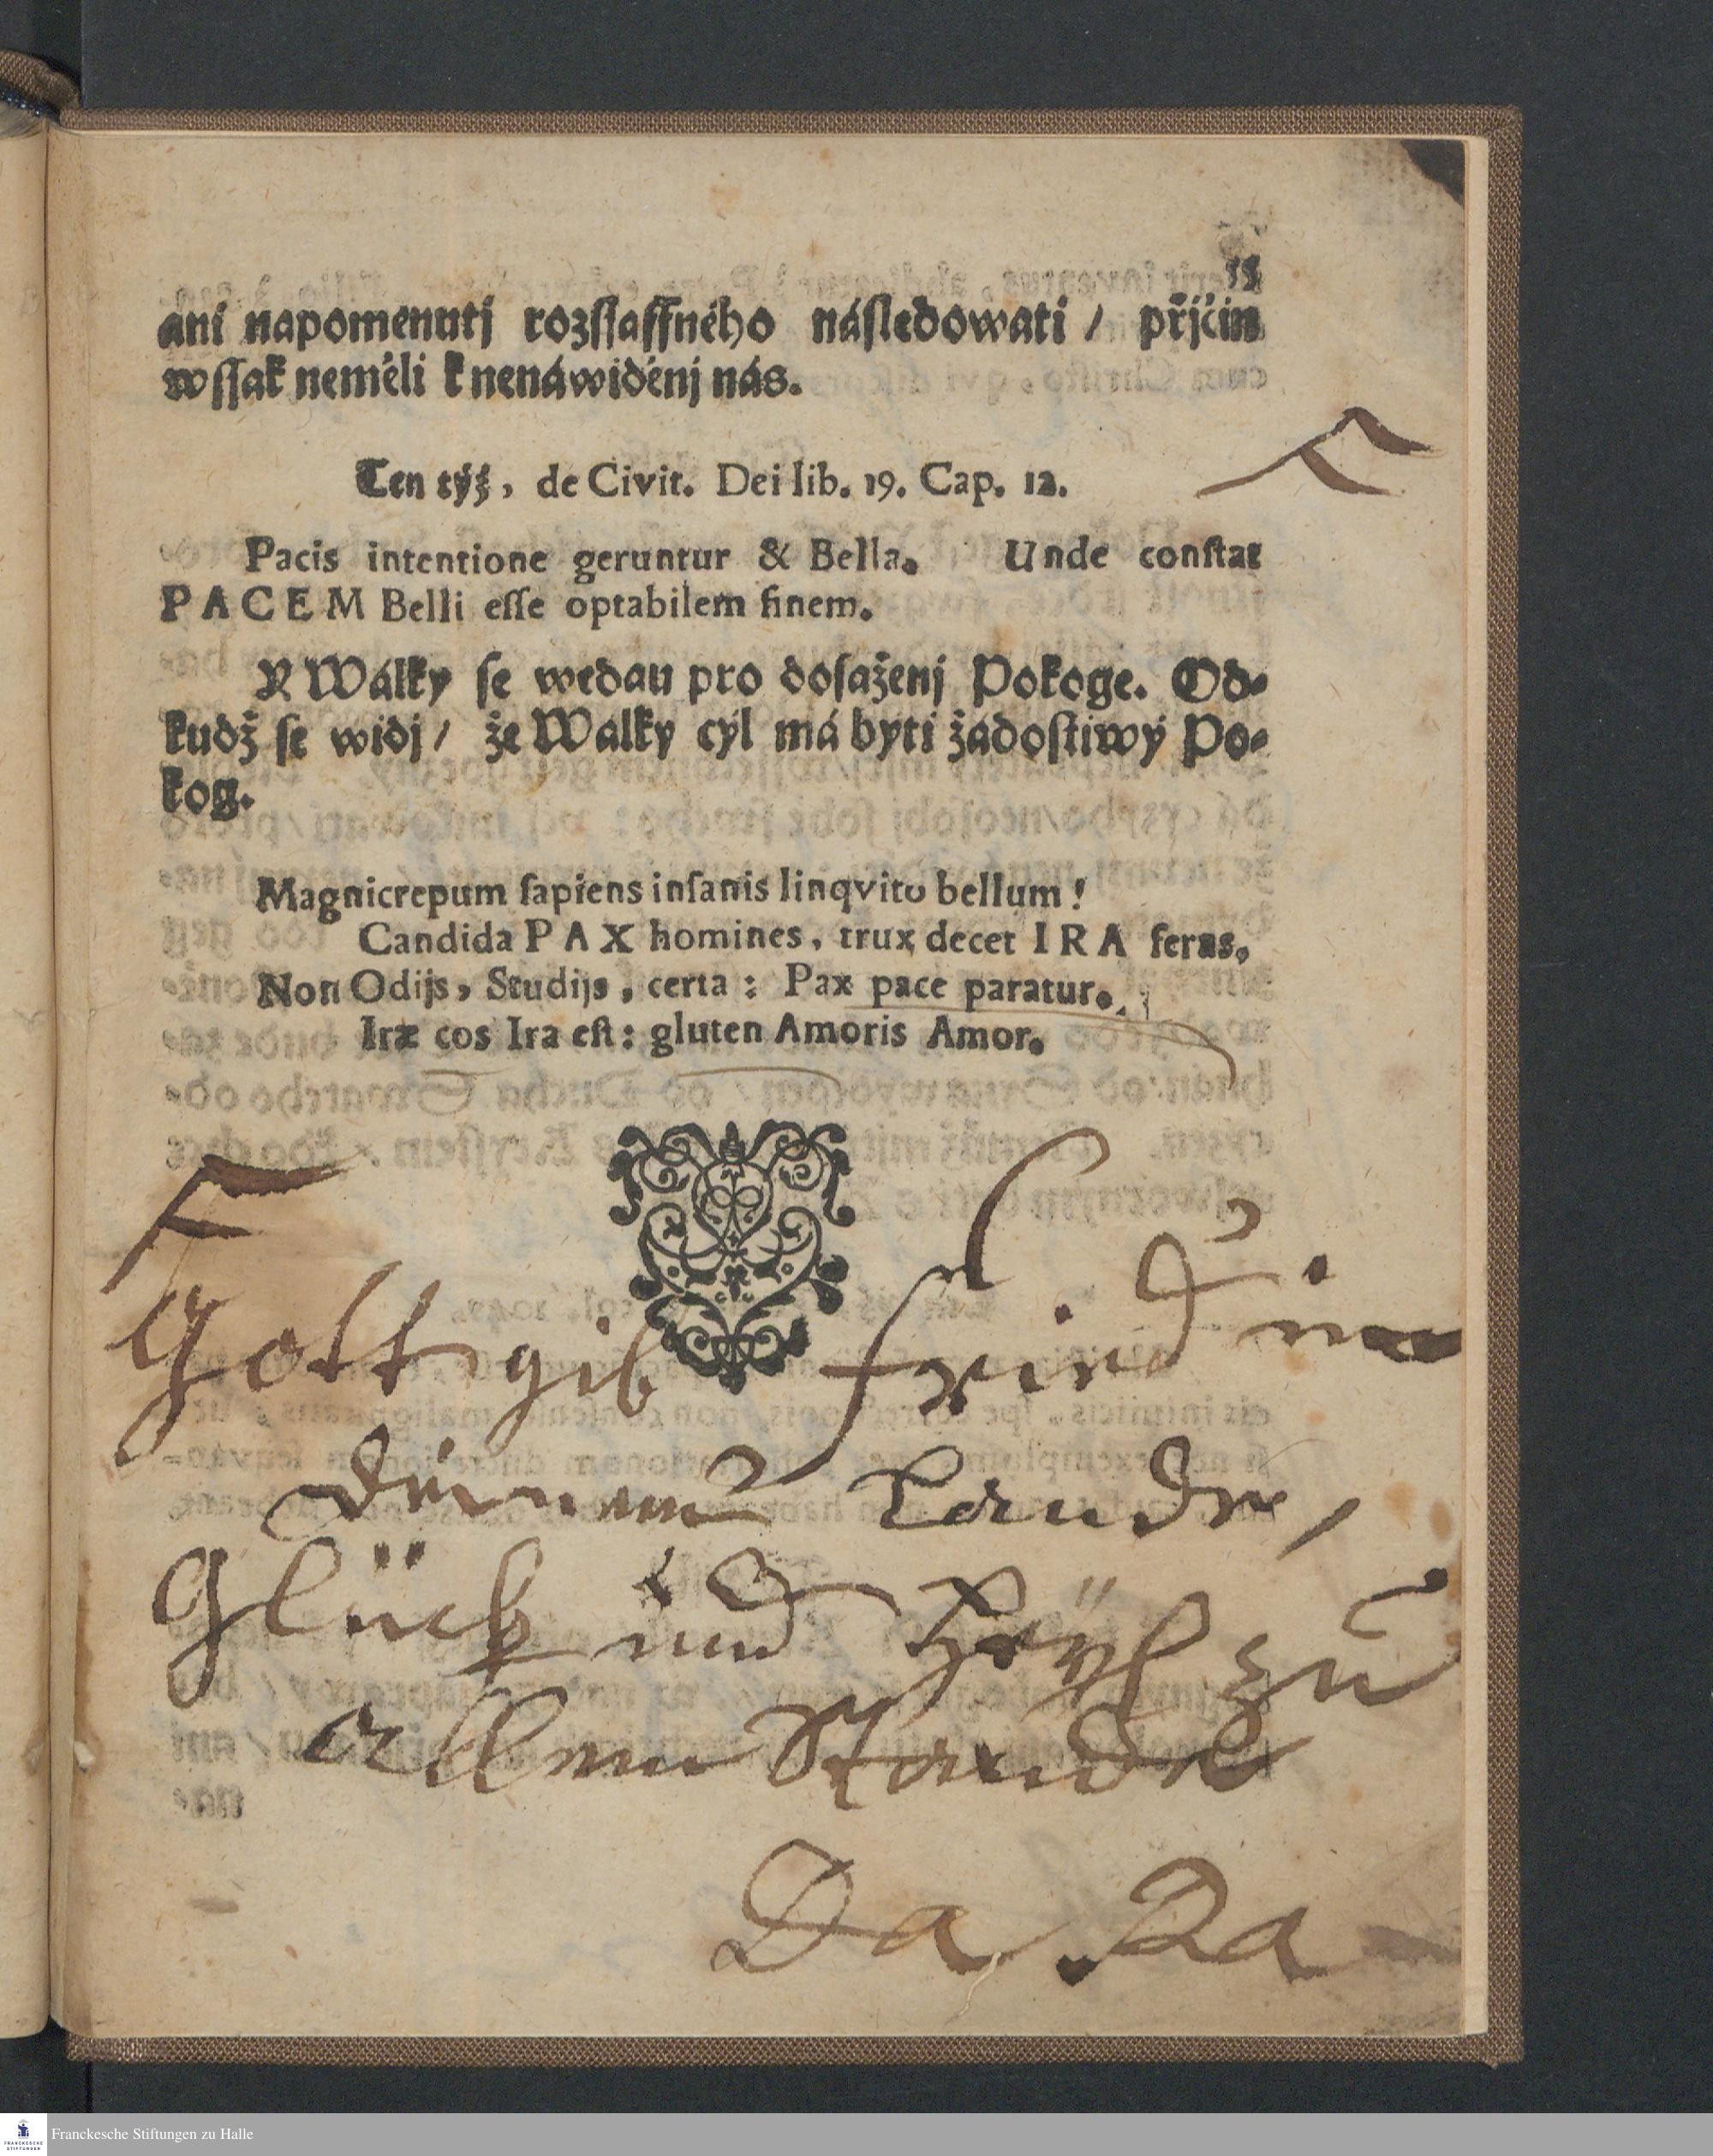 15
ani napomenutj rozſſaffného náſledowati / přjčin
wſſak neměli k nenáwiděnj nás.
Ten týž, de Civit. Dei lib. 19. Cap. 12.
Pacis intentione geruntur & Bella. Unde conſtat
PACEM Belli eſſe optabilem finem.
Y Wálky ſe wedau pro doſaženj Pokoge. Od-
kudž ſe widj / že Walky cýl má byti žadoſtiwý Po-
kog.
Magnicrepum ſapiens inſanis linqvito bellum!
Candida PAX homines, trux decet IRA feras.
Non Odijs, Studijs, certa: Pax pace paratur.
Iræ cos Ira eſt: gluten Amoris Amor.
Gott gib fried in
deinem Lande,
Glück und Heÿl zu
allem Stande
Da
Franckesche Stiftungen zu Halle
FRANCKESCHE
STIFTUNGEN